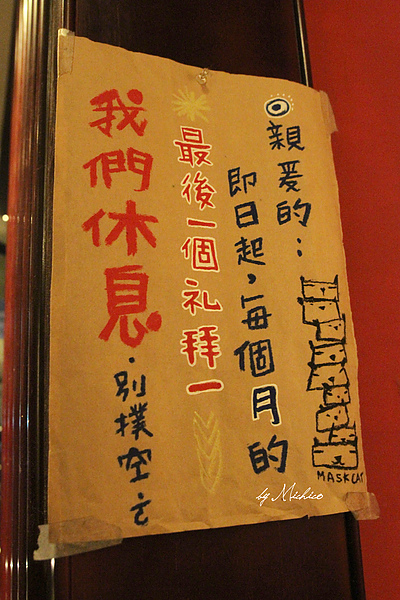 親爱的：
即日起，每個月的
最後一個礼拜一
我們休息．別撲空
MASKCAT
by Michico